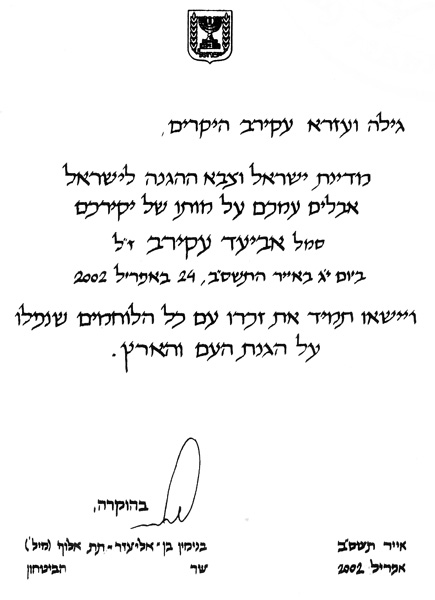 גילה ועזרא עקירב היקרים,
מדינת ישראל וצבא ההגנה לישראל
אבלים עמכם על מותו של יקירכם
סמל אביעד עקירב ז"ל
ביום י"ג באייר התשס"ב, 24 באפריל 2002
ויישאו תמיד את זכרו עם כל הלוחמים שנפלו
על הגנת העם והארץ.
בהוקרה,
בנימין בן-אליעזר-תת אלוף (מיל')
שר הביטחון
אייר תשס"ב
אפריל 2002